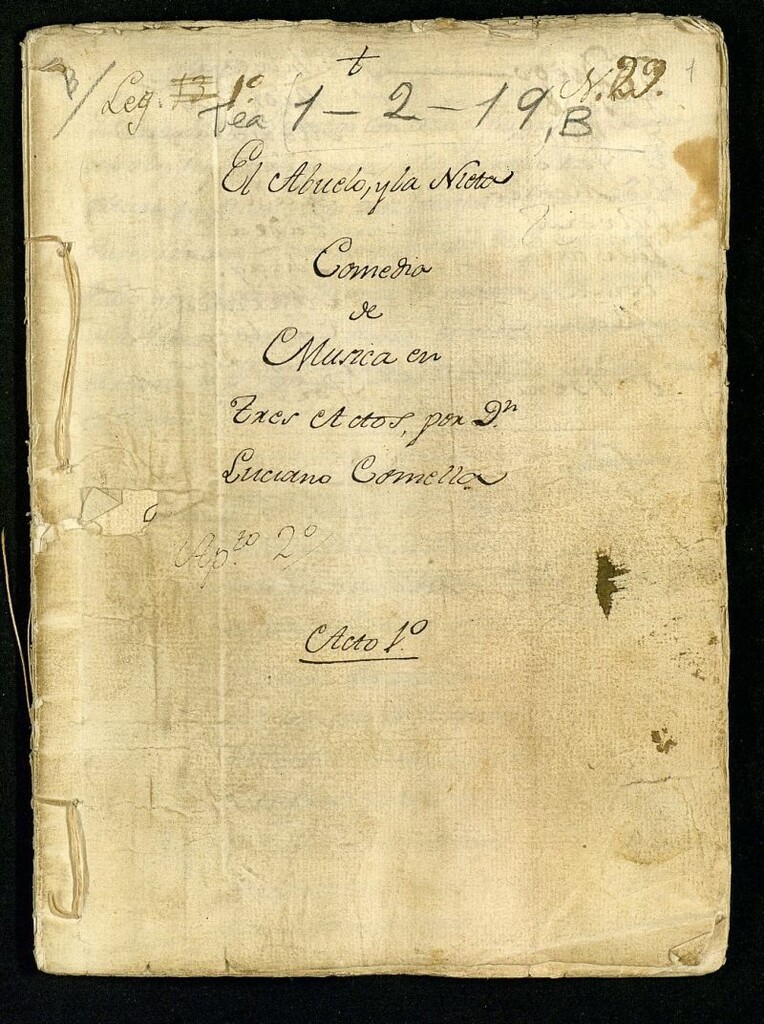 t
Leg. 13 1º N. 29. 1
Tea 1-2-19, B
El Abuelo, y la Nieta
Comedia
de
Musica en
Tres Actos, por Dn.
Luciano Comella
Apto. 2º
Acto 1º